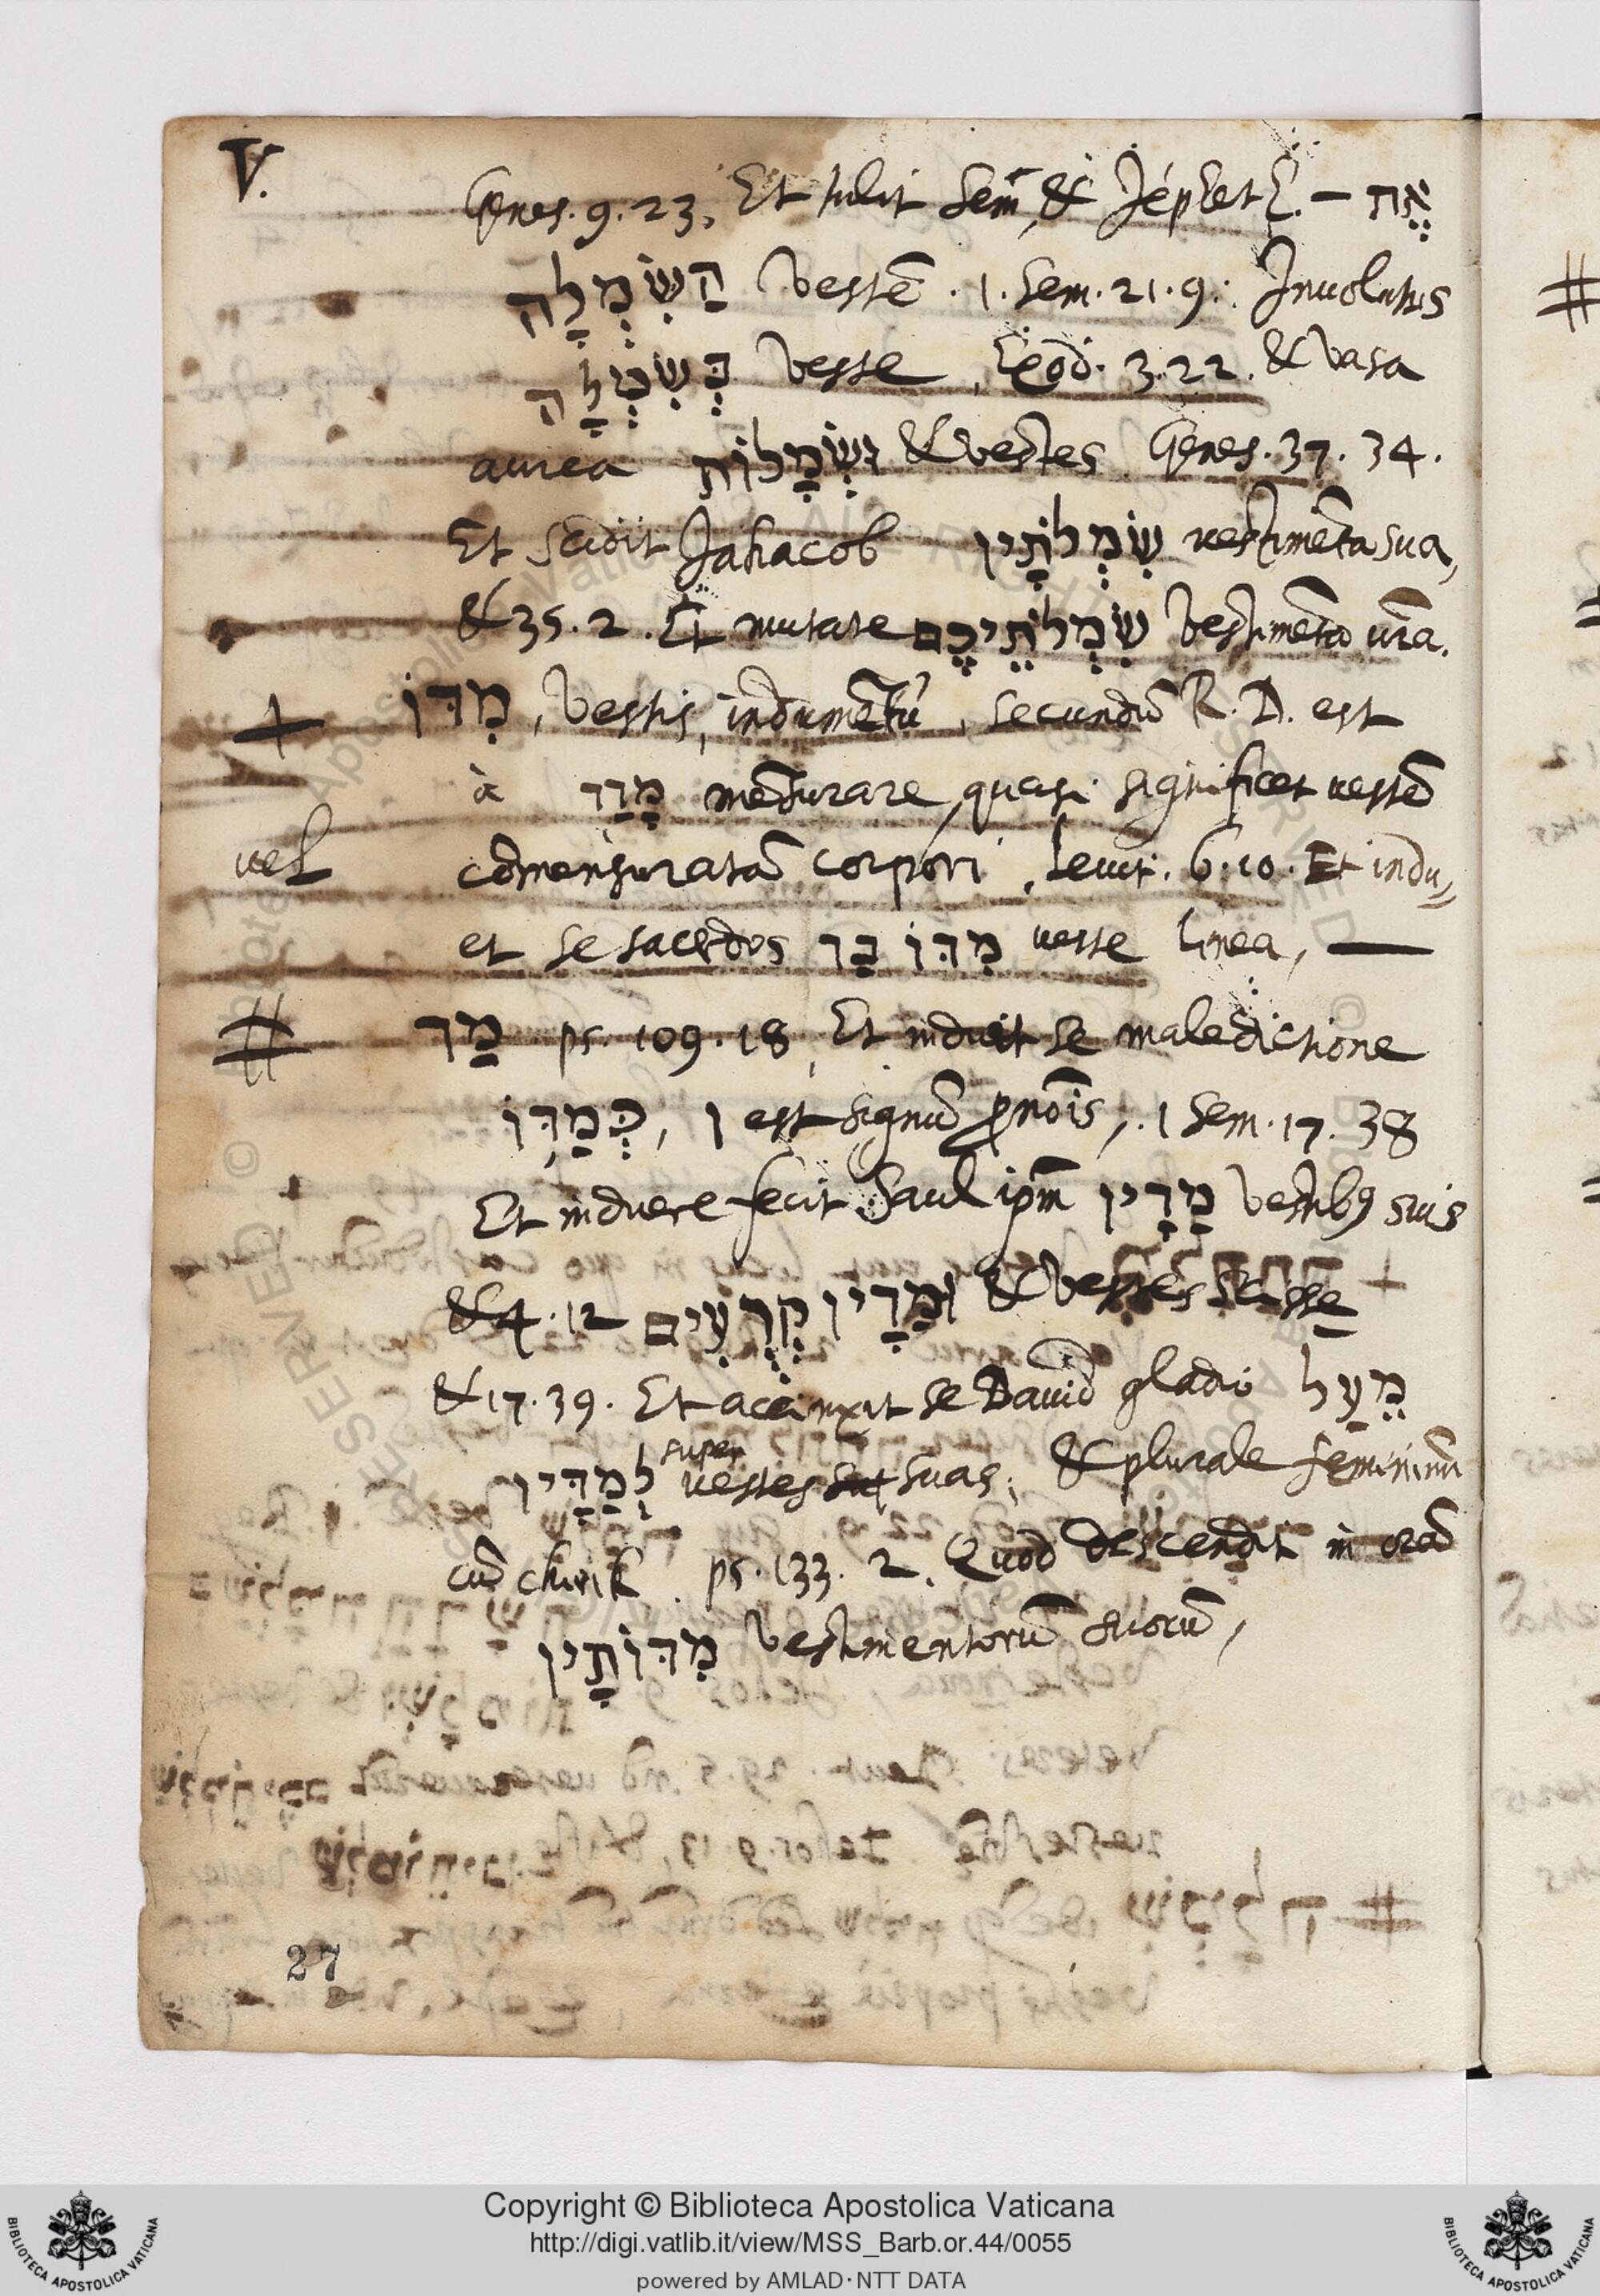 V.
Genes. 9. 23, Et tulit Sem, & Jépheth. — אֶת
הַשִּׂמְלָה Vestē. 1. Sem. 21. 9: Involutus
בְּשִׂמְלָה Veste, Exod. 3. 22. & vasa
aurea וּשְׂמָלוֹת & vestes Genes. 37. 34.
Et scidit Jahacob שִׂמְלֹתָיו vestimēta sua,
& 35. 2. Et mutate שִׂמְלֹתֵיכֶם Vestimēta vrā.
+ מִדּוֹ, Vestis, indumētū, secundū R. D. est
à מָדַד mēsurare, quasi significet vestē
vel cōmensuratā corpori. Levit. 6. 10. Et indu⸗
et se sacerdos מִדּוֹ בַד veste linea, —
# מַד ps. 109. 18, Et induit se maledictione
כְּמַדּוֹ, ו est signū pronōis, 1 Sem. 17. 38
Et induere fecit Saul ipm̄ מַדָּיו vestibꝰ suis
& 4. 12 וּמַדָּיו קְרֻעִים & vestes scissae
& 17. 39. Et accinxit se David gladio מֵעַל
לְמַדָּיו super vestes suas; & plurale femininū
cū chirik. ps. 133. 2. Quod descendit in orā
מִדּוֹתָיו Vestimentorū suorū,
27
Copyright © Biblioteca Apostolica Vaticana
http://digi.vatlib.it/view/MSS_Barb.or.44/0055
powered by AMLAD·NTT DATA
BIBLIOTECA APOSTOLICA VATICANA
BIBLIOTECA APOSTOLICA VATICANA